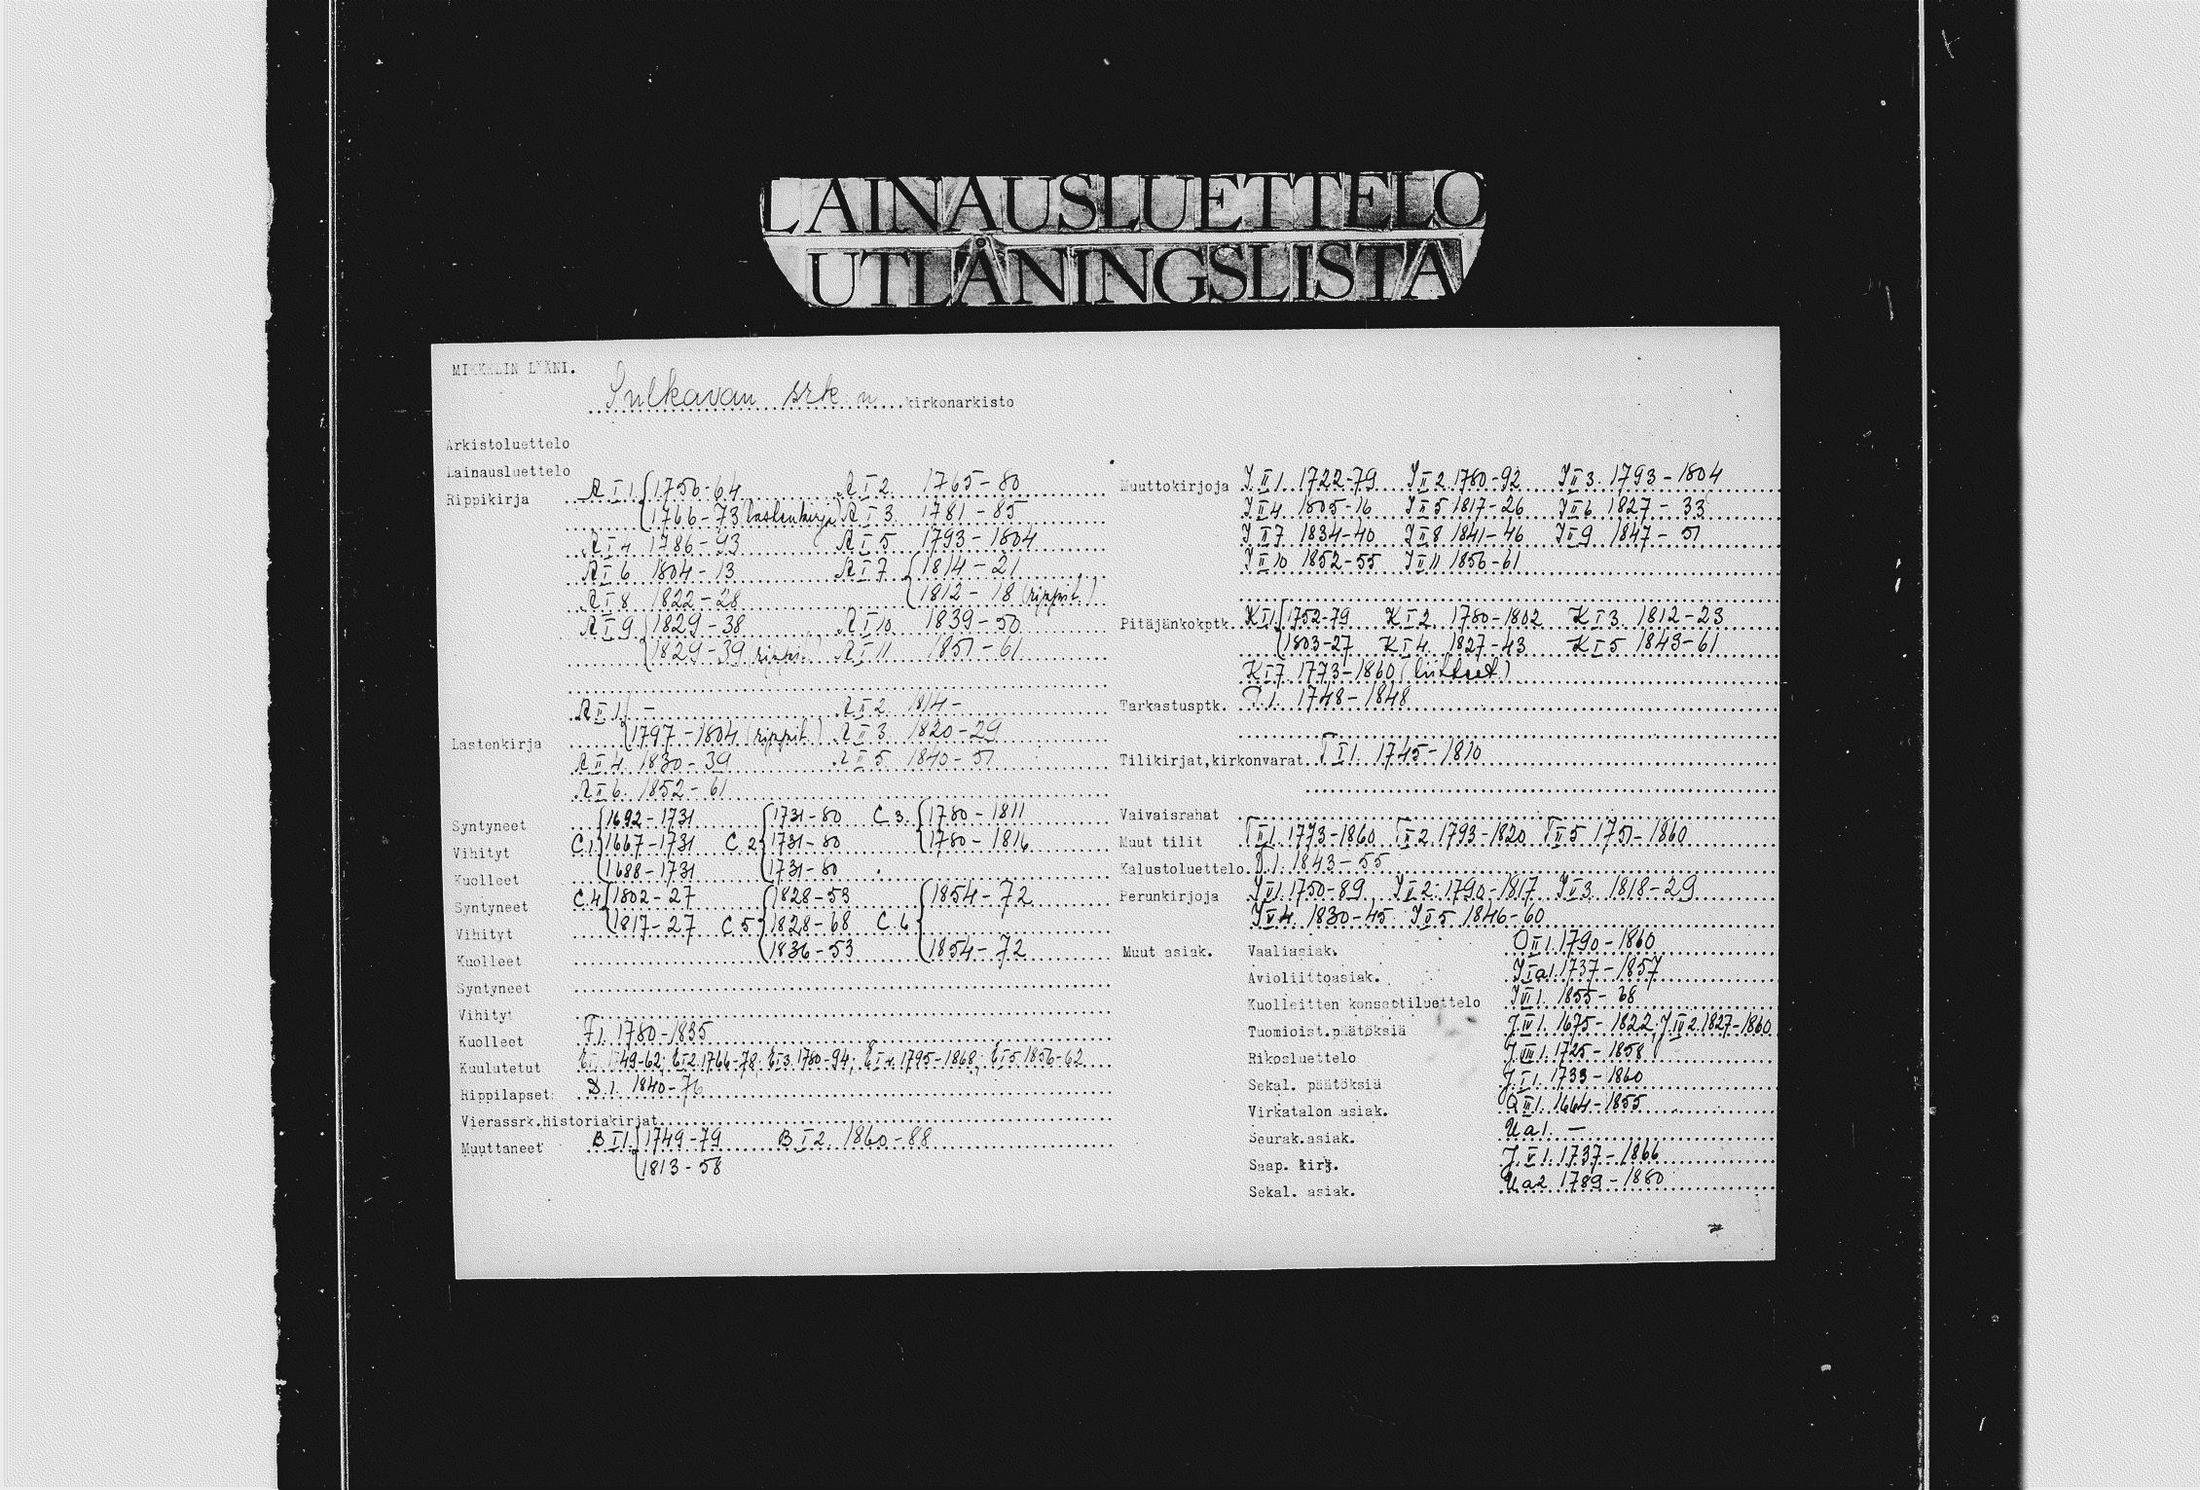 LAINAUSLUETTELO
UTLÅNINGSLISTA
MIKKELIN LÄÄNI.
Sulkavan srk:n kirkonarkisto
Arkistoluettelo
Lainausluettelo
Rippikirja A I 1. 1756-64 A I 2. 1765-80
1766-73 (lastenkirja) A I 3. 1781-85
A I 4 1786-93 A I 5 1793-1804
A I 6 1804-13 A I 7 1814-21
A I 8 1822-28 1812-18 (rippit.)
A I 9 1829-38 A I 10. 1839-50
1829-39 rippit.) A I 11 1851-61
A II 1. - A II 2. 1814-
Lastenkirja 1797-1804 (rippit.) A II 3. 1820-29
A II 4. 1830-39 A II 5 1840-51
A II 6. 1852-61
Syntyneet 1692-1731 1731-80 C 3. 1780-1811
Vihityt C 1 1667-1731 C 2 1731-80 1780-1816
Kuolleet 1688-1731 1731-80
Syntyneet C 4 1802-27 1828-53 1854-72
Vihityt 1817-27 C 5 1828-68 C 6
Kuolleet 1836-53 1854-72
Syntyneet
Vihityt
Kuolleet F 1. 1780-1835
Kuulutetut E I 1749-62; E I 2 1766-78; E I 3. 1780-94; E I 4. 1795-1868; E I 5 1856-62
Rippilapset: D. 1. 1840-76
Vierassrk.historiakirjat
Muuttaneet B II 1. 1749-79 B I 2. 1860-88
1813-58
Muuttokirjoja I II 1. 1722-79 I II 2. 1780-92 I II 3. 1793-1804
I II 4. 1805-16 I II 5 1817-26 I II 6. 1827-33
I II 7 1834-40 I II 8 1841-46 I II 9 1847-51
I II 10 1852-55 I II 11 1856-61
Pitäjänkokptk. K I 1 1752-79 K I 2. 1780-1802 K I 3. 1812-23
1803-27 K I 4. 1827-43 K I 5 1843-61
K I 7 1773-1860 (liitteet)
Tarkastusptk. 1. 1748-1848
Tilikirjat,kirkonvarat T I 1. 1745-1810
Vaivaisrahat
Muut tilit T II 1. 1773-1860 T II 2. 1793-1820 T II 5 1751-1860
Kalustoluettelo 1. 1843-55
Perunkirjoja I V 1. 1750-89 I V 2. 1790-1817 I V 3. 1818-29
I V 4. 1830-45 I V 5 1846-60
Muut asiak. Vaaliasiak. O II 1. 1790-1860
Avioliittoasiak. I I a 1. 1737-1857
Kuolleitten konseptiluettelo 1855-68
Tuomioist.päätöksiä J IV 1. 1675-1822, J IV 2. 1827-1860
Rikosluettelo J III 1. 1725-1858
Sekal. päätöksiä J I 1. 1733-1860
Virkatalon asiak. 1664-1855
Seurak.asiak. U a 1. -
Saap. kirj. J V 1. 1737-1866
Sekal. asiak. U a 2 1789-1880